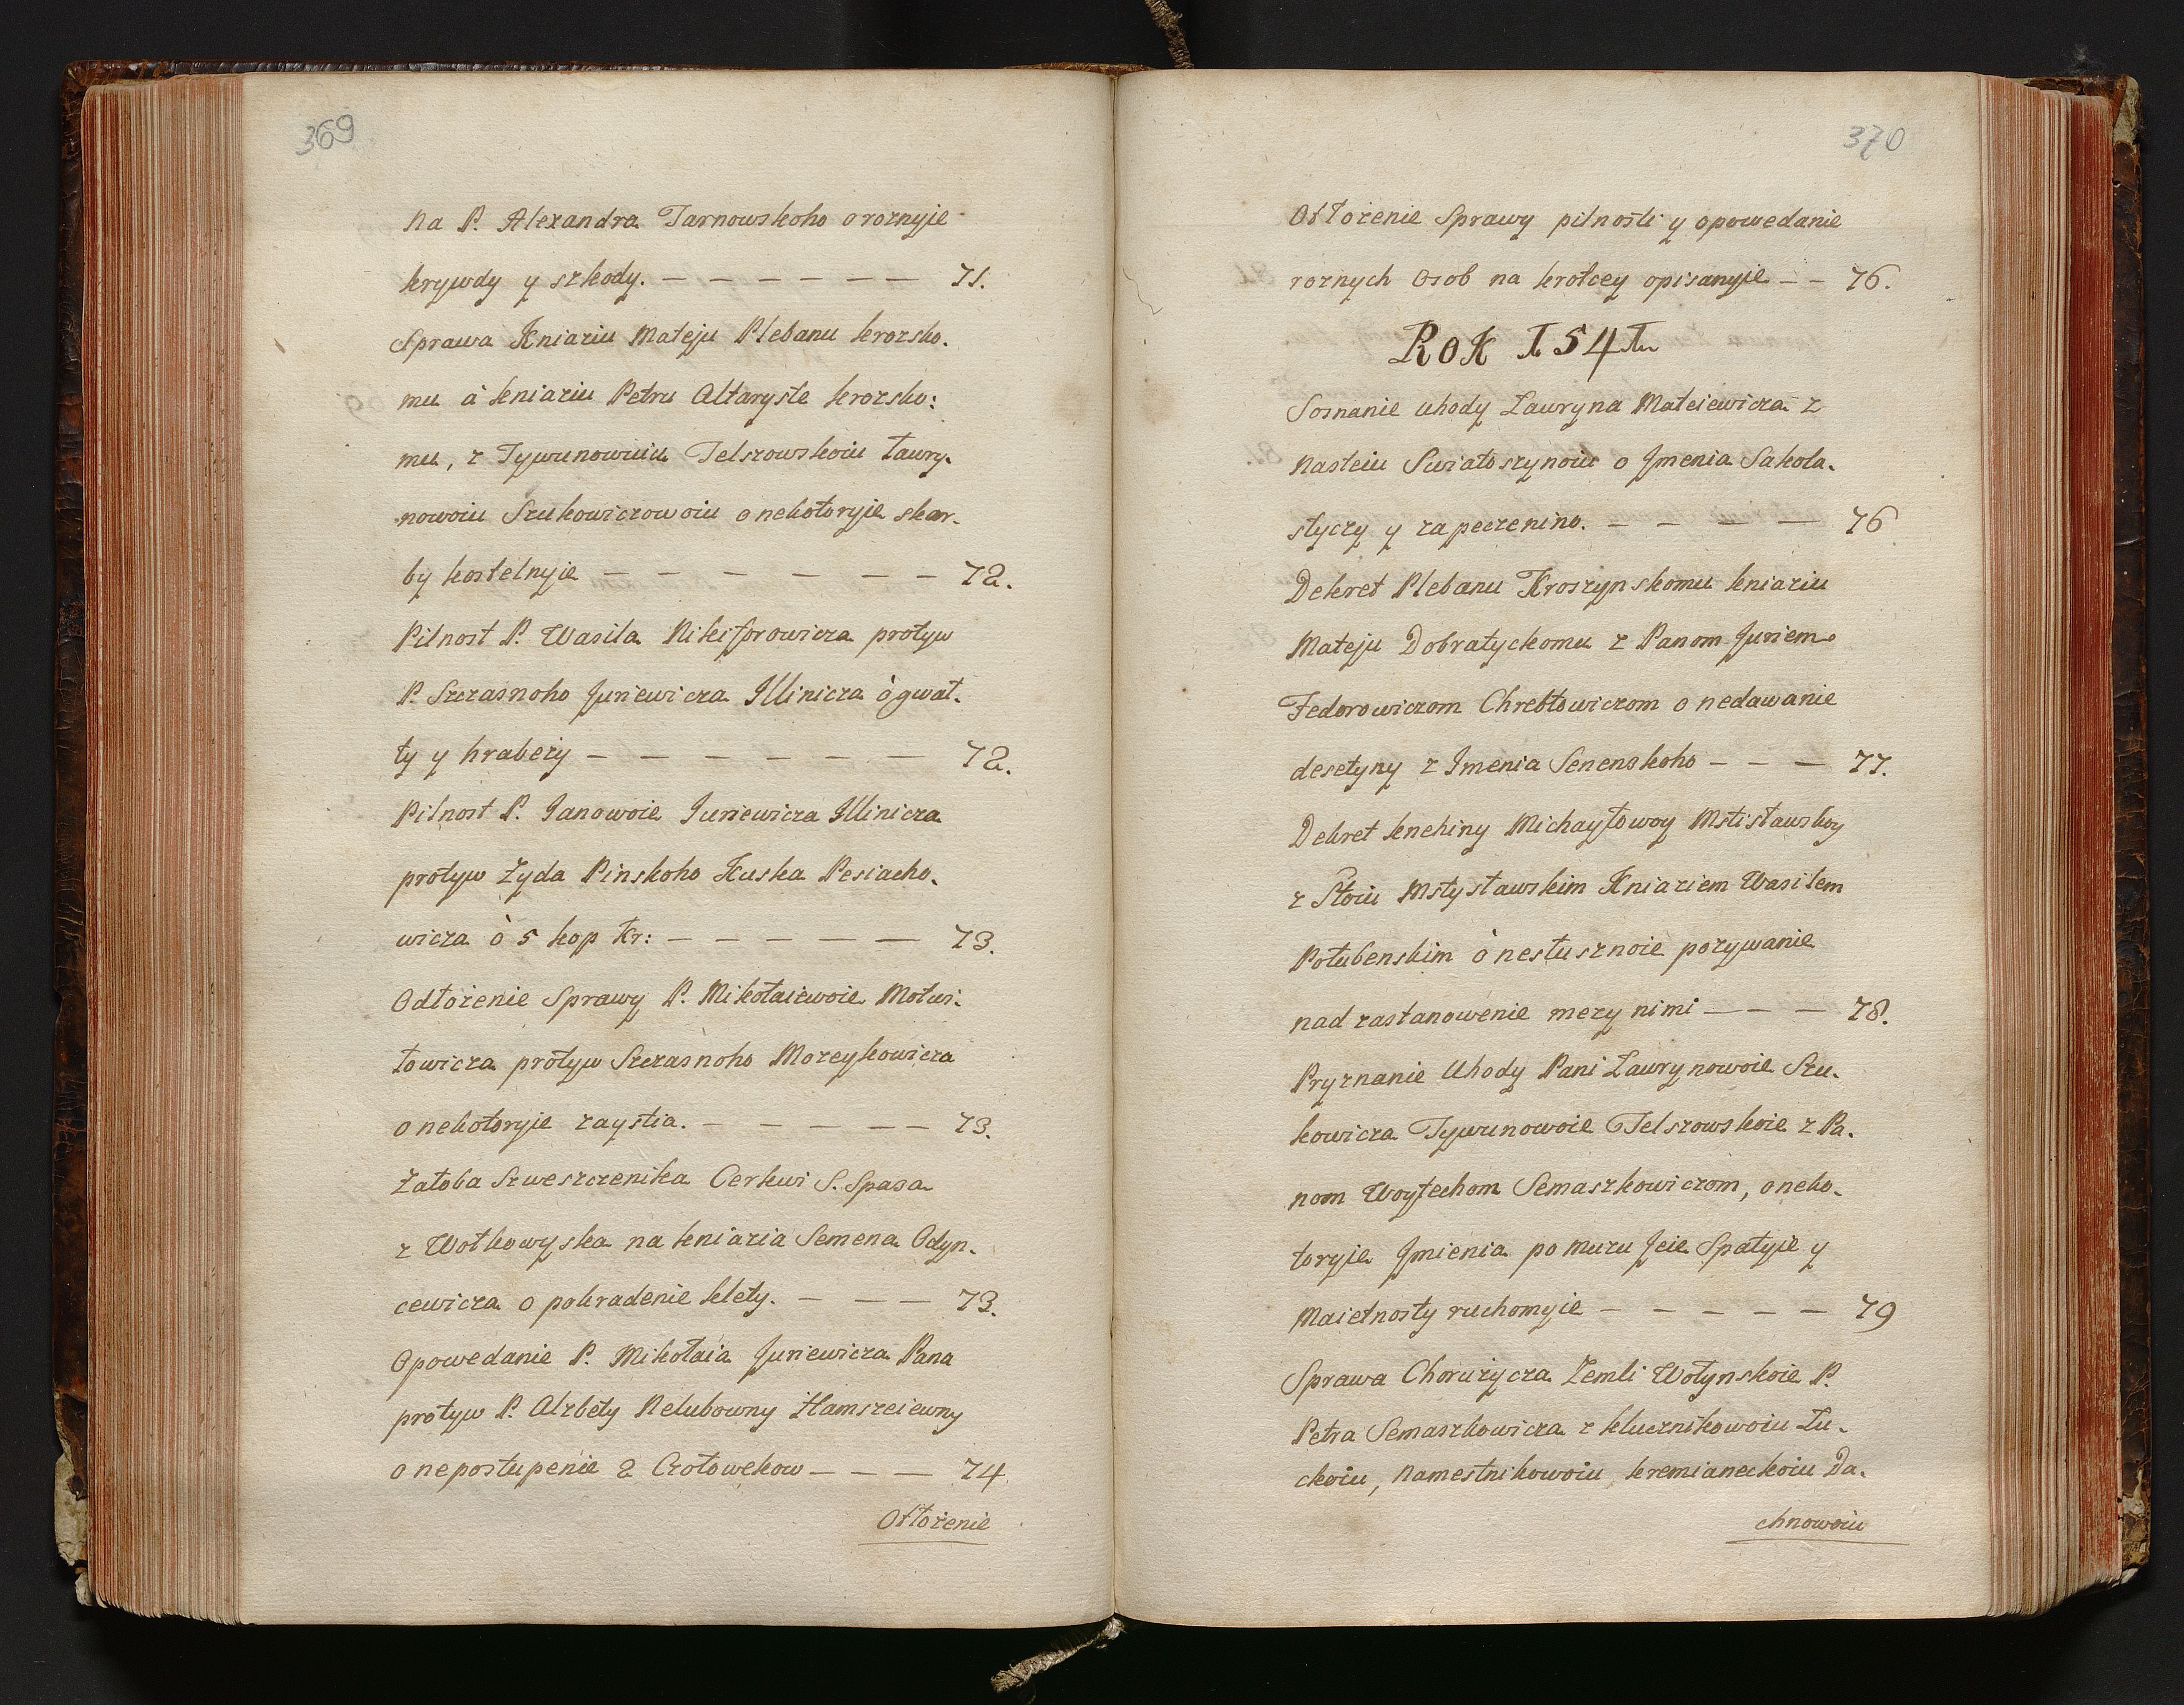 369
Na P. Alexandra Tarnowskoho o roznyje
krywdy y szkody. — — — — — — 71.
Sprawa Kniaziu Mateju Plebanu krozsko.
mu à kniaziu Petru Altaryste krozsko:
mu, z Tywunowuiu Telszowskoiu Ławry.
nowoiu Szukowiczowoiu o nekotoryje skar.
by kostelnyie — — — — — — 72.
Pilnost P. Wasila Nikiforowicza protyw
P. Szczasnoho Juriewicza Illinicza ò gwał.
ty y hrabeży — — — — — — 72.
Pilnost P. Janowoie Juriewicza Illinicza
protyw Żyda Pinskoho Kuska Pesiacho.
wicza ò 5 kop Kr: — — — — — 73.
Odłożenie Sprawy P. Mikołaiewoie Motwi.
łowicza protyw Szczasnoho Mozeykowicza
o nekotoryje zaystia. — — — — — 73.
Załoba Szweszczenika Cerkwi S. Spasa
z Wołkowyska na kniazia Semena Odyn.
cewicza o pokradenie klety. — — — 73.
Opowedanie P. Mikołaia Juriewicza Pana
protyw P. Alzbety Nelubowny Hamszeiewny
o nepostupenie 2 Czołowekow — — — 74
Otłożenie
370
Otłożenie Sprawy pilnosti y opowedanie
roznych Osob na krotcey opisanyie — — 76.
ROK 1541
Soznanie uhody Ławryna Mateiewicza z
Nasteiu Swiatoszynoiu o Jmenia Sakola.
styczy y zapeczenino. — — — — 76
Dekret Plebanu Kroszynskomu kniaziu
Mateju Dobratyckomu z Panom Juriem
Fedorowiczom Chrebtowiczom o nedawanie
desetyny z Imenia Senenskoho — — — 77.
Dekret knehiny Michayłowoy Mstisławskoy
z Stoiu Mstysławskim Kniaziem Wasilem
Połubenskim ò nesłusznoie pozywanie
nad zastanowenie mezy nimi — — — 78.
Pryznanie Uhody Pani Ławrynowoie Szu.
kowicza Tywunowoie Telszowskoie z Pa.
nom Woytechom Semaszkowiczom, o neko.
toryje Jmienia po muzu Jeie Spałyie y
Maietnosty ruchomyie — — — — — 79
Sprawa Chorużycza Zemli Wołynskoie P.
Petra Semaszkowicza z kluczníkowoiu Łu.
ckoiu, Namestnikowoiu kremianeckoiu Da.
chnowoiu